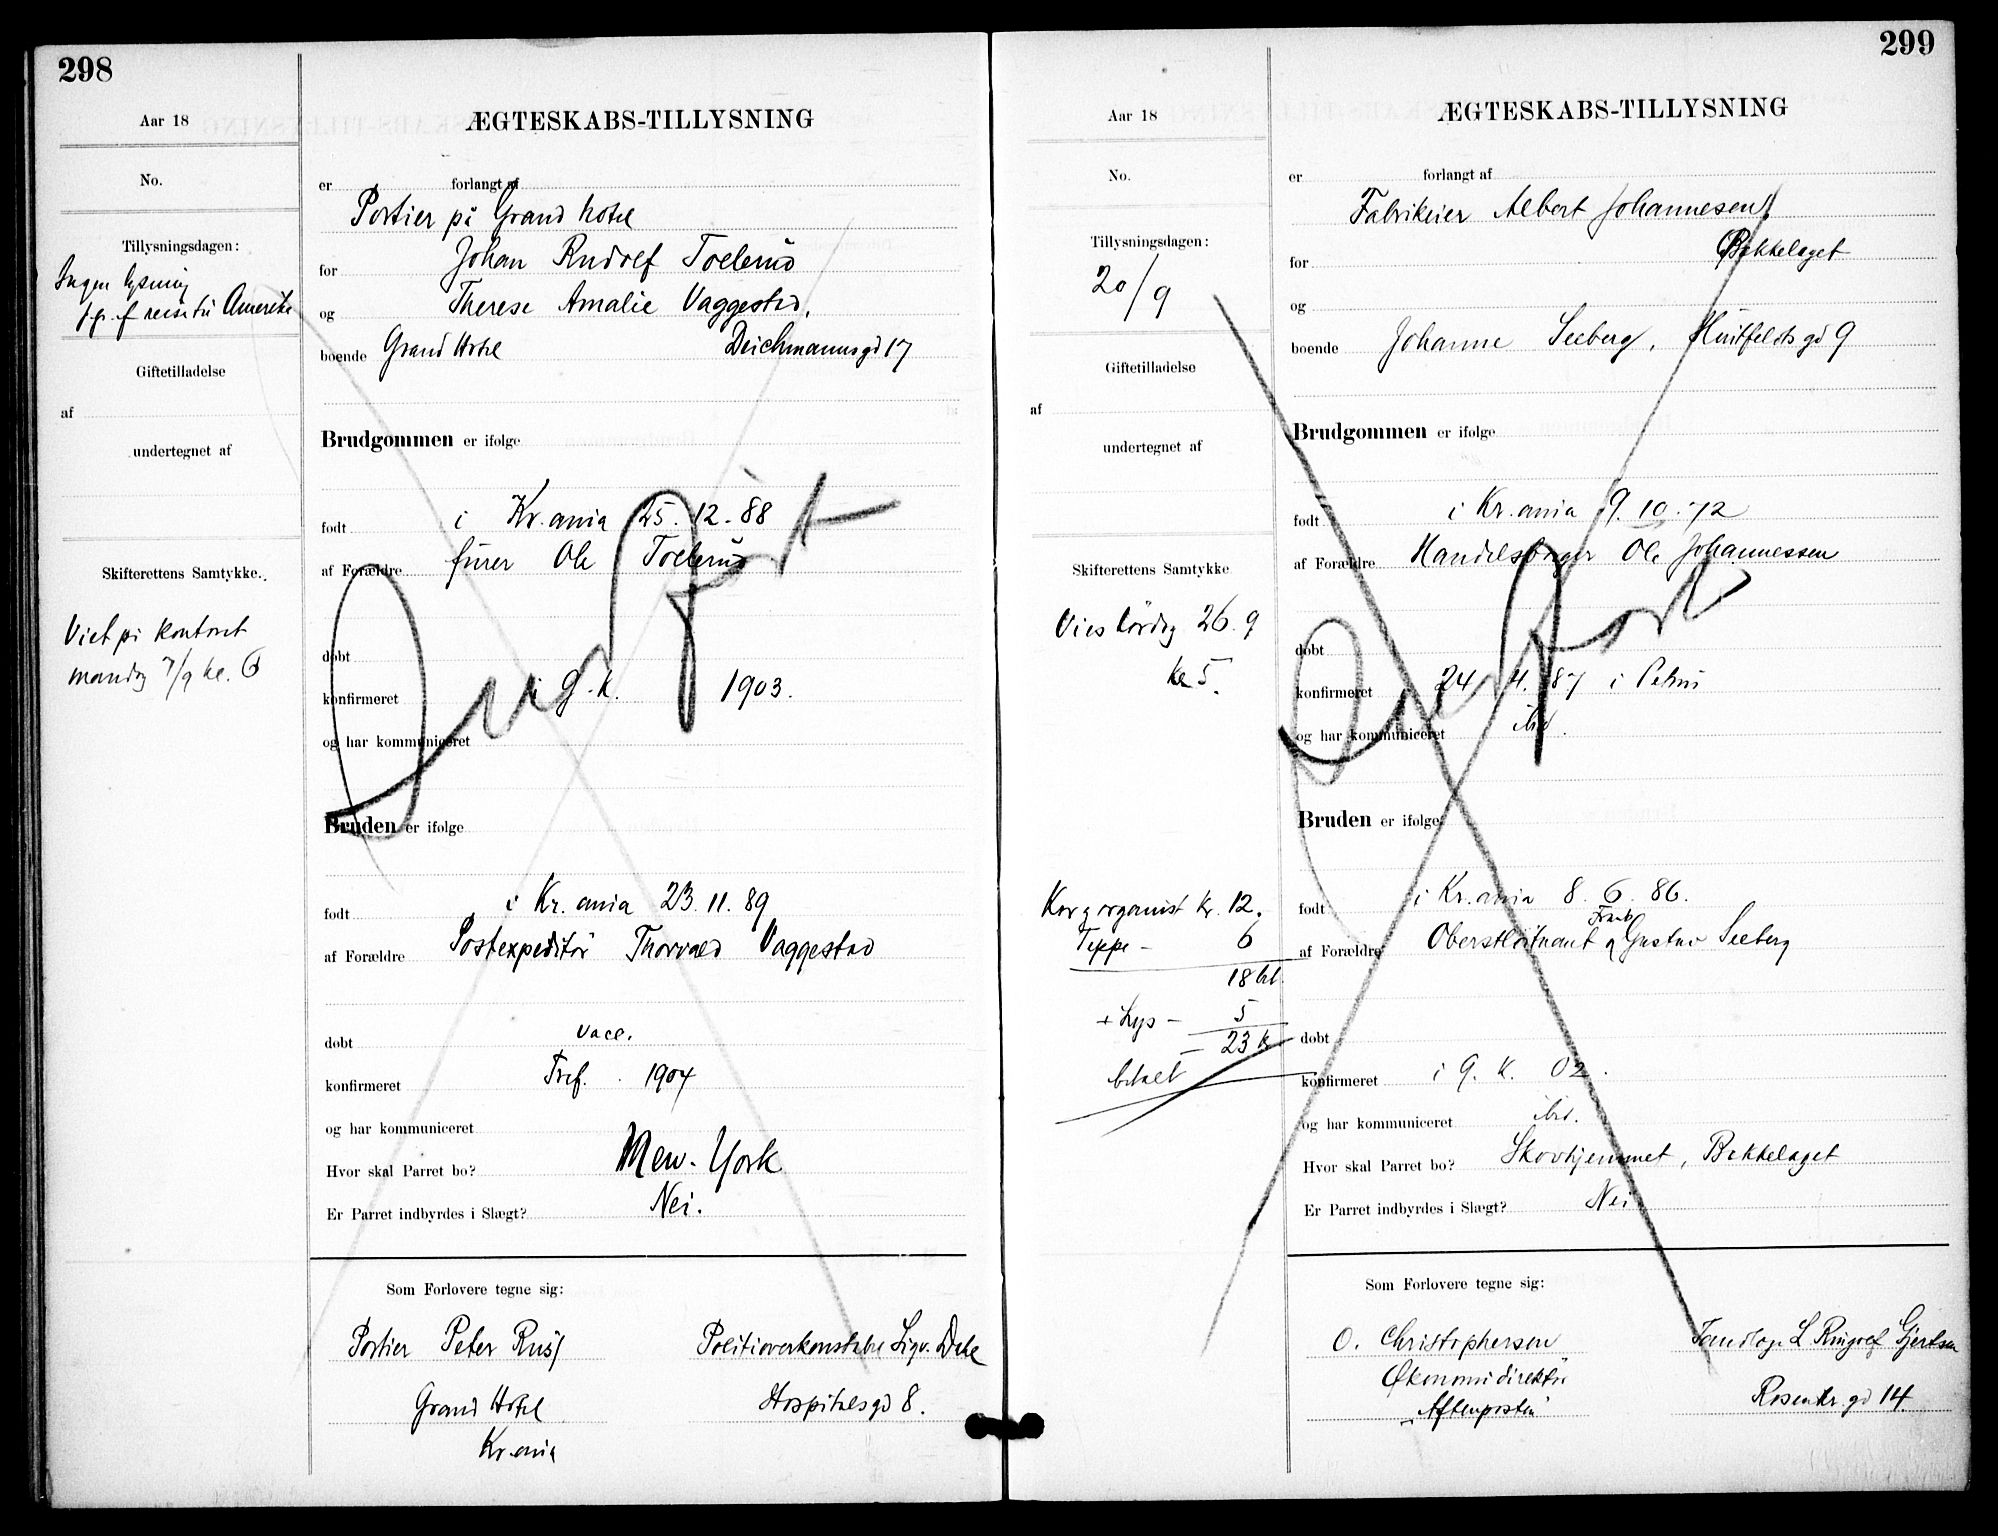 298
Aar 18
No.
Tillysningsdagen:
Ingen lysning
p.gr. af reise til Amerika
Giftetilladelse
af
undertegnet af
Skifterettens Samtykke.
Viet på kontoret
mandag 7/9 kl. 6
ÆGTESKABS-TILLYSNING
er forlangt af
Portier på Grand hotel
for Johan Rudolf Toelerud
og Therese Amalie Vaggestad,
boende Grand Hotel Deichmannsgd 17
Brudgommen er ifølge
født i Kr.ania 25.12.88
af Forældre Ole Toelerud
døbt
konfirmeret i G.K. 1903.
og har kommuniceret
Indført
Bruden er ifølge
født i Kr.ania 23.11.89
af Forældre Postexpeditør Thorvald Vaggestad
døbt vacc.
konfirmeret Tref. 1904
og har kommuniceret
Hvor skal Parret bo? New-York
Er Parret indbyrdes i Slægt? Nei.
Som Forlovere tegne sig:
Portier Peter Rusf Politioverkonstabel Sigv. Dahl
Grand Hotel Hospitalsgd 8.
Kr.ania
299
Aar 18
No.
Tillysningsdagen:
20/9
Giftetilladelse
af
undertegnet af
Skifterettens Samtykke
Vies Lørdag 26.9
kl 5.
Kor og organist kr. 12.
Teppe - 6
18
+ Lys - 5
23 kr
betalt
ÆGTESKABS-TILLYSNING
er forlangt af
Fabrikeier Albert Johannesen
for Bekkelaget
og
boende Johanne Seeberg, Huitfeldtsgd 9
Brudgommen er ifølge
født i Kr.ania 9.10.72
af Forældre Handelsborger Ole Johannessen
døbt
konfirmeret 24 4. 87 i Petrus
og har kommuniceret ibid.
Indført
Bruden er ifølge
født i Kr.ania 8.6.86.
af Forældre Oberstløitnant Gustav Seeberg
døbt
konfirmeret i G.K. 02.
og har kommuniceret ibid.
Hvor skal Parret bo? Skovhjemmet, Bekkelaget
Er Parret indbyrdes i Slægt? Nei
Som Forlovere tegne sig:
O. Christophersen Tandlæge L Ringolf Gjertsen
Økonomidirektør Rosenkr.gd 14.
"Aftenposten"